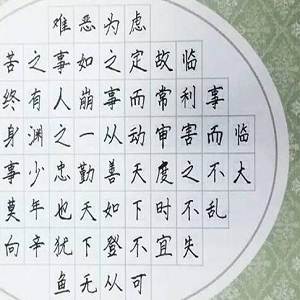 难恶为虑
苦之事如之定故临
终有人崩事而常利事
身渊之一从动审害而临
事少忠勤善天度之不大
莫年也天如下时不乱
向辛犹下登不宜失
鱼无从可